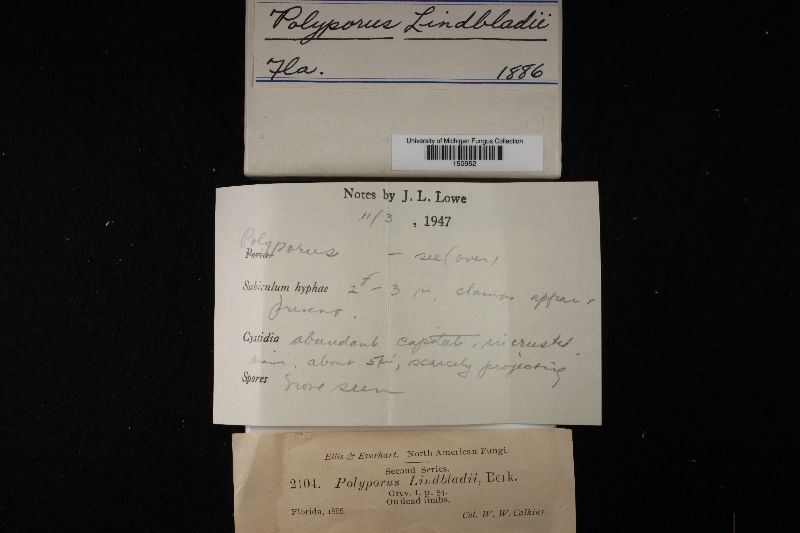 Polyporus Lindbladii
Fla. 1886
University of Michigan Fungus Collection
150952
Notes by J. L. Lowe
11/3, 1947
Polyporus
Poria — see (over)
Subiculum hyphae 2 - 3 µ, clamps appar.
present.
Cystidia abundant capitate, incrusted,
diam. about 5µ, scarcely projecting
Spores None seen
Ellis & Everhart. North American Fungi.
Second Series.
2104. Polyporus Lindbladii, Berk.
Grev. 1. p. 54.
On dead limbs.
Florida, 1886. Col. W. W. Calkins.